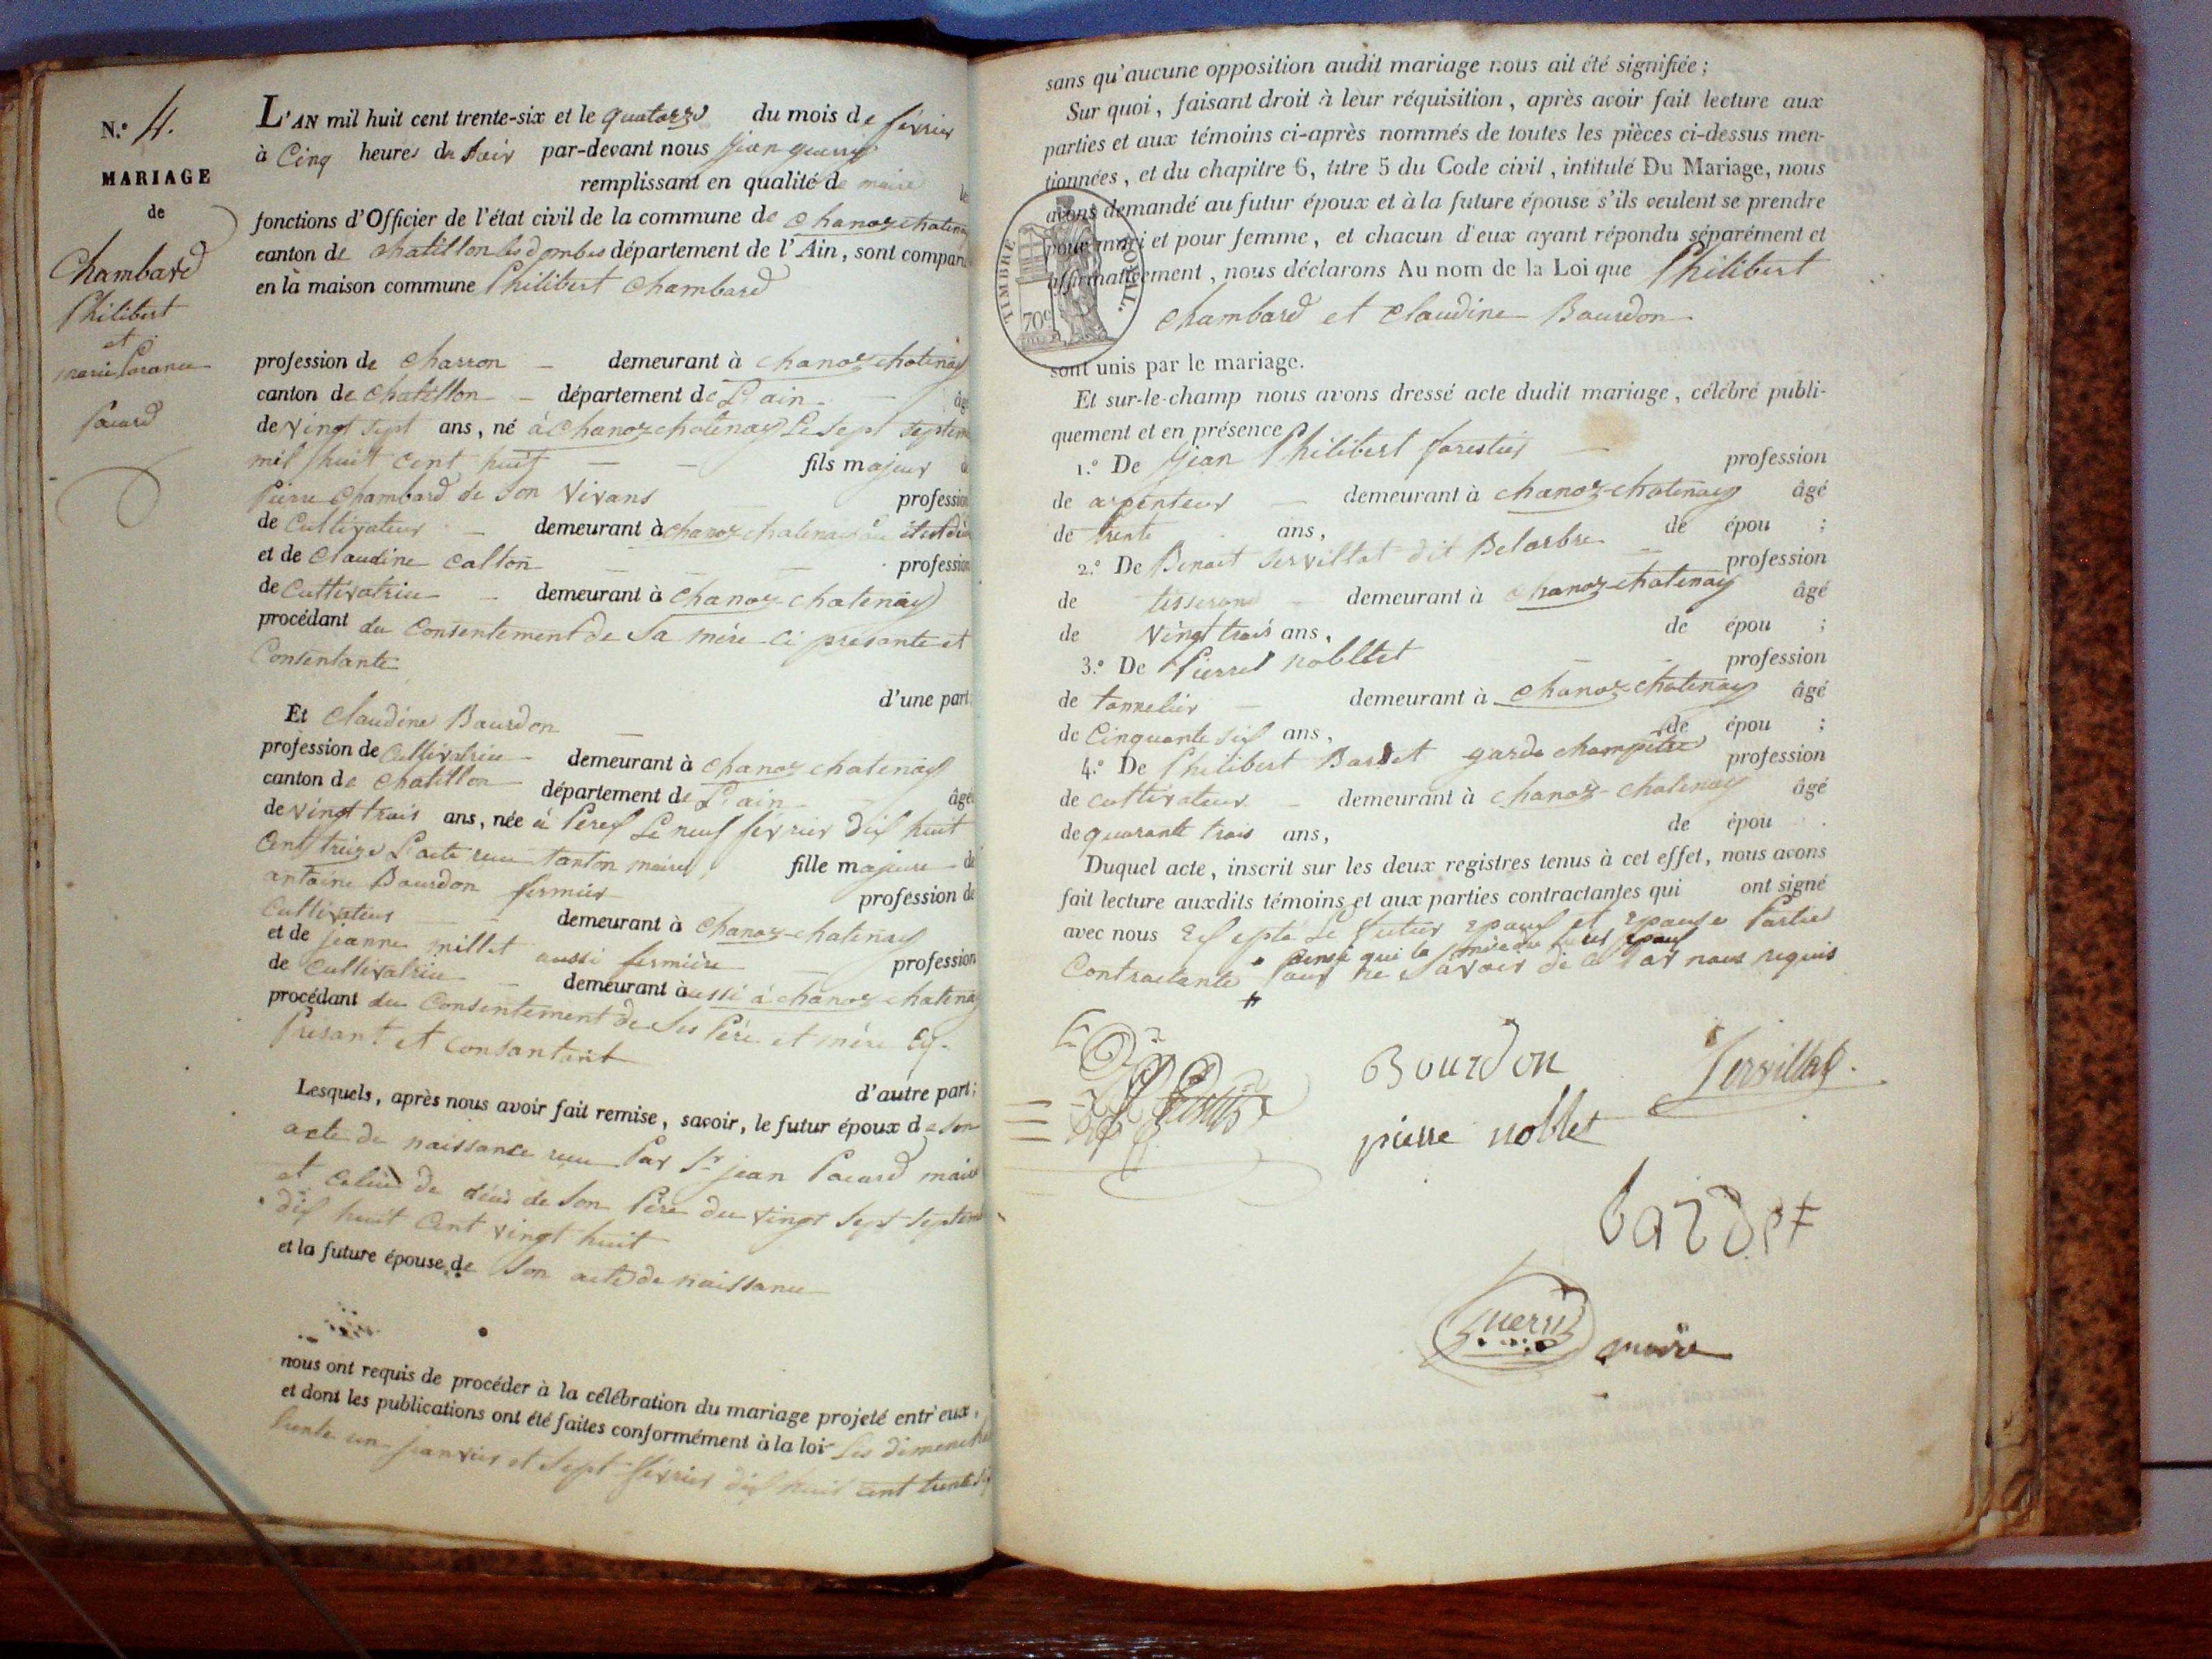 N.º 4.
MARIAGE
de
Chambard
Philibert
et
marie
Pacard
L'AN mil huit cent trente-six et le quatorze du mois de février
à Cinq heures du Soir par-devant nous jean guerin
remplissant en qualité de maire les
fonctions d'Officier de l'état civil de la commune de chanoz chatenay
canton de chatillon les dombes département de l'Ain, sont comparu
en la maison commune Philibert Chambard
profession de charron demeurant à chanoz chatenay
canton de chatillon département de L'ain âgé
de vingt sept ans, né à chanoz chatenay Le sept septem
mil huit cent huit fils majeur de
Pierre Chambard de son vivans profession
de Cultivateur demeurant à chanoz chatenay
et de Claudine Calton profession
de Cultivatrice demeurant à chanoz chatenay
procédant du Consentement de Sa mère ci presante et
Consentante
d'une part;
Et Claudine Bourdon
profession de Cultivatrice demeurant à chanoz chatenay
canton de chatillon département de L'ain âgée
de vingt trois ans, née à Perex Le neuf février dix huit
Cent treize L'acte reçu tanton maire, fille majeure de
antoine Bourdon fermier profession de
Cultivateur demeurant à chanoz-chatenay
et de jeanne millet aussi fermière profession
de Cultivatrice demeurant à aussi à chanoz chatenay
procédant du Consentement de Ses Père et mère Cy-
Présant et Consantant
d'autre part;
Lesquels, après nous avoir fait remise, savoir, le futur époux de son
acte de naissance reçu Par Sr jean Pacard maire
et Celui de décès de Son Père du vingt Sept Septem
dix huit Cent vingt huit
et la future épouse de Son acte de naissance
nous ont requis de procéder à la célébration du mariage projeté entr'eux,
et dont les publications ont été faites conformément à la loi Les dimanches
trente un janvier et Sept février dix huit cent trente six
sans qu'aucune opposition audit mariage nous ait été signifiée;
Sur quoi, faisant droit à leur réquisition, après avoir fait lecture aux
parties et aux témoins ci-après nommés de toutes les pièces ci-dessus men-
tionnées, et du chapitre 6, titre 5 du Code civil, intitulé Du Mariage, nous
avons demandé au futur époux et à la future épouse s'ils veulent se prendre
pour mari et pour femme, et chacun d'eux ayant répondu séparément et
affirmativement, nous déclarons Au nom de la Loi que Philibert
TIMBRE ROYAL.
70c
Chambard et Claudine Bourdon
sont unis par le mariage.
Et sur-le-champ nous avons dressé acte dudit mariage, célébré publi-
quement et en présence
1.º De Jean Philibert forestier profession
de arpenteur demeurant à chanoz-chatenay âgé
de trente ans, de épou ;
2.º De Benoit Servillat dit Belarbre profession
de tisserand demeurant à chanoz-chatenay âgé
de vingt trois ans, de épou ;
3.º De Pierre nobllet profession
de tonnelier demeurant à chanoz chatenay âgé
de Cinquante six ans, de épou ;
4.º De Philibert Bardet garde champetre profession
de cultivateur demeurant à chanoz-chatenay âgé
de quarante trois ans, de épou .
Duquel acte, inscrit sur les deux registres tenus à cet effet, nous avons
fait lecture auxdits témoins et aux parties contractantes qui ont signé
avec nous Exepté Le futur epoux et epouse Partie
ainsi qui la mère du futur Epoux
Contractante Pour ne Savoir de ce Par nous requis
Bourdon
Servillat
pierre noblet
bardet
Guerin maire